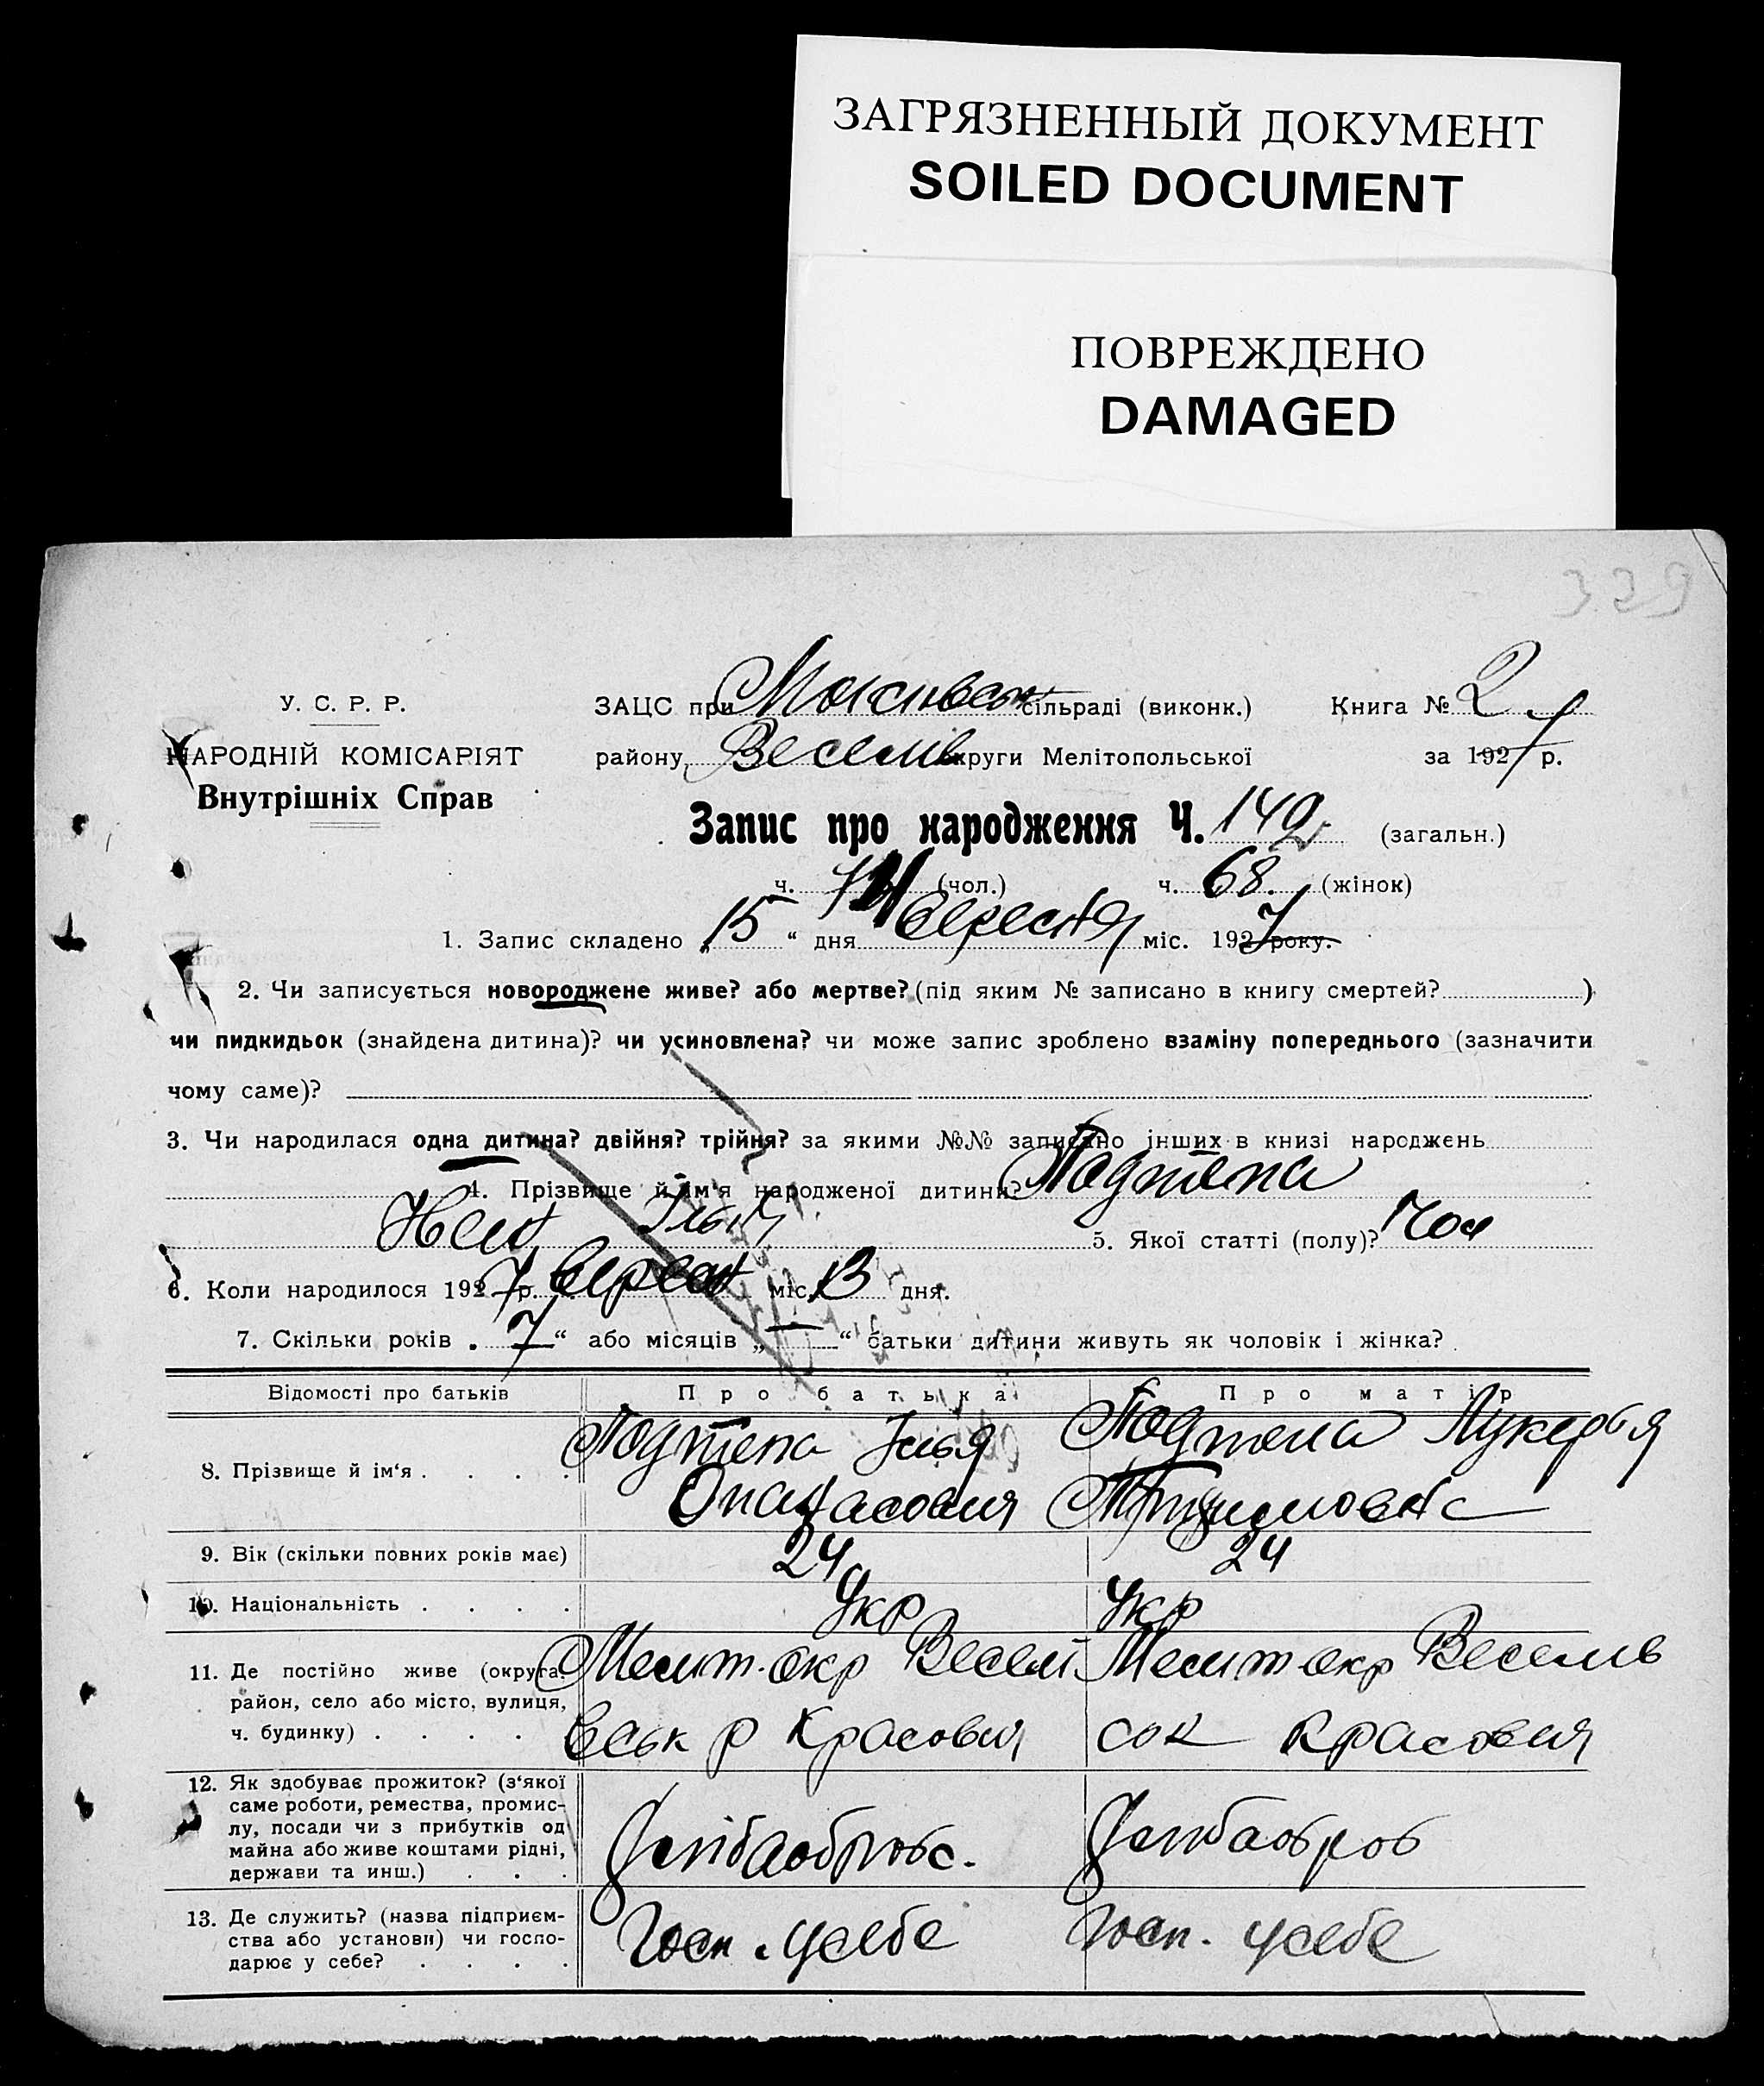 ЗАГРЯЗНЕННЫЙ ДОКУМЕНТ
SOILED DOCUMENT
ПОВРЕЖДЕНО
DAMAGED
339
У. С. Р. Р.
НАРОДНІЙ КОМІСАРІЯТ
Внутрішніх Справ
ЗАЦС при сільраді (виконк.) Книга № 2
району Веселів округи Мелітопольської за 1927 р.
Запис про народження Ч. 149 (загальн.)
ч. (чол.) ч. 68. (жінок)
1. Запис складено „15“ дня Вересня міс. 1927 року.
2. Чи записується новороджене живе? або мертве? (під яким № записано в книгу смертей? )
чи пидкидьок (знайдена дитина)? чи усиновлена? чи може запис зроблено взаміну попереднього (зазначити
чому саме)?
3. Чи народилася одна дитина? двійня? трійня? за якими №№ записано інших в книзі народжень
4. Прізвище й ім'я народженої дитини?
5. Якої статті (полу)? Чол
6. Коли народилося 1927 р. Вересн міс. 13 дня.
7. Скільки років „7“ або місяців „—“ батьки дитини живуть як чоловік і жінка?
Відомості про батьків Про батька Про матір
8. Прізвище й ім'я . . . . Подтепа Ілья Подтепа Лукерья
Опанасович
9. Вік (скільки повних років має) 24 24
10. Національність . . . . Укр Укр
11. Де постійно живе (округа, Мелит. окр Веселі Мелит окр Веселів
район, село або місто, вулиця,
ч. будинку) . . . . вськ р
12. Як здобуває прожиток? (з'якої
саме роботи, ремества, промис-
лу, посади чи з прибутків од
майна або живе коштами рідні,
держави та инш.) . . .
13. Де служить? (назва підприєм-
ства або установи) чи госпо- Госп. усебе Госп. усебе
дарює у себе? . . . .